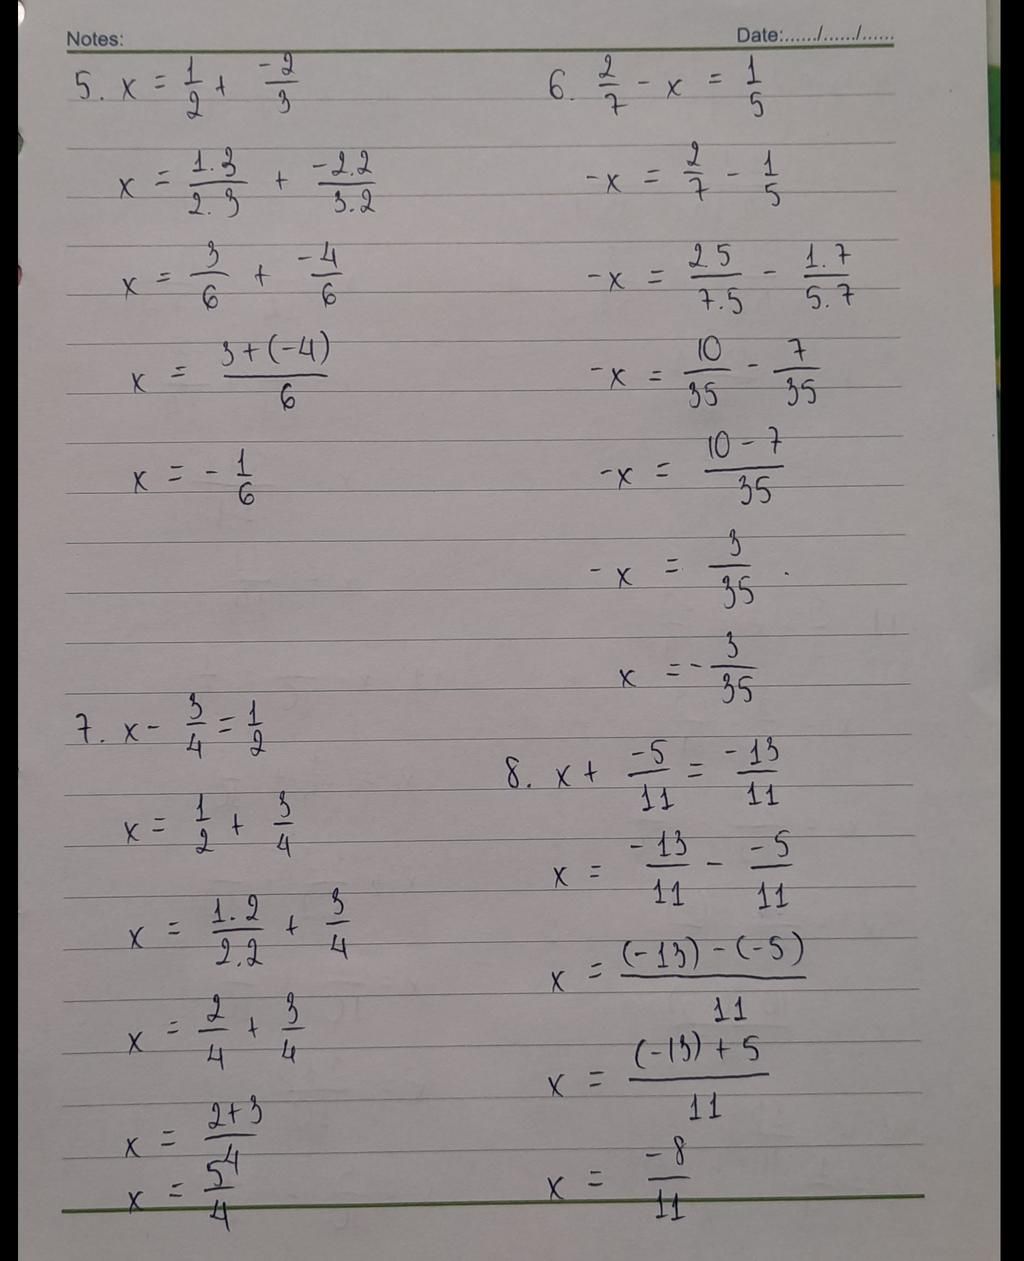 Notes:
Date:....../....../......
5. x = 1/2 + -2/3
x = 1.3/2.3 + -2.2/3.2
x = 3/6 + -4/6
x = 3+(-4)/6
x = - 1/6
6. 2/7 - x = 1/5
-x = 2/7 - 1/5
-x = 2 5/7.5 - 1.7/5.7
-x = 10/35 - 7/35
-x = 10-7/35
-x = 3/35 .
x = - 3/35
7. x - 3/4 = 1/2
x = 1/2 + 3/4
x = 1.2/2.2 + 3/4
x = 2/4 + 3/4
x = 2+3/4
x = 5/4
8. x + -5/11 = -13/11
x = -13/11 - -5/11
x = (-13)-(-5)/11
x = (-13)+5/11
x = -8/11